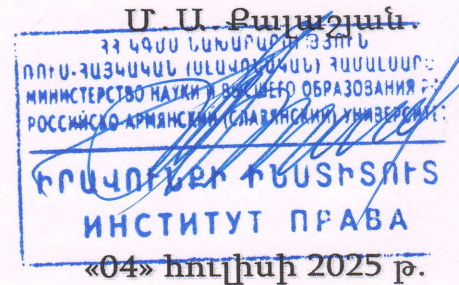 Մ. Ա. Քալաշյան.
ՀՀ ԿԳՄՍ ՆԱԽԱՐԱՐՈՒԹՅՈՒՆ
ՌՈՒՍ-ՀԱՅԿԱԿԱՆ (ՍԼԱՎՈՆԱԿԱՆ) ՀԱՄԱԼՍԱՐ
МИНИСТЕРСТВО НАУКИ И ВЫСШЕГО ОБРАЗОВАНИЯ
РОССИЙСКО-АРМЯНСКИЙ (СЛАВЯНСКИЙ) УНИВЕРСИТЕТ
ԻՐԱՎՈՒՆՔԻ ԻՆՍՏԻՏՈՒՏ
ИНСТИТУТ ПРАВА
«04» հուլիսի 2025 թ.